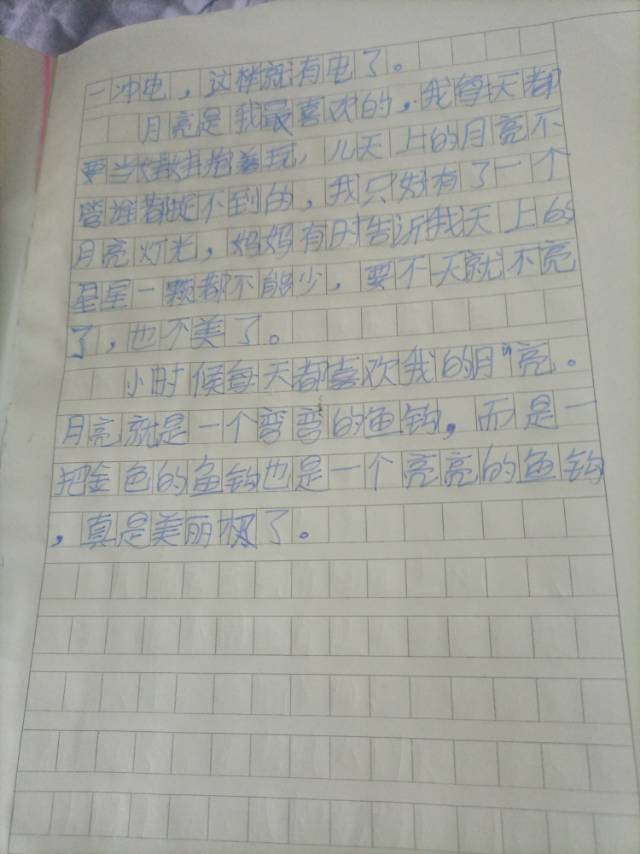 一冲电，这样就有电了。
月亮是我最喜欢的，我每天都
要当抱着玩，儿天上的月亮不
管谁都捉不到的，我只好有了一个
月亮灯光，妈妈有时告沂我天上的
星星一颗都不能少，要不天就不亮
了，也不美了。
小时候每天都喜欢我的月亮。
月亮就是一个弯弯的鱼钩，而是一
把金色的鱼钩也是一个亮亮的鱼钩
，真是美丽极了。